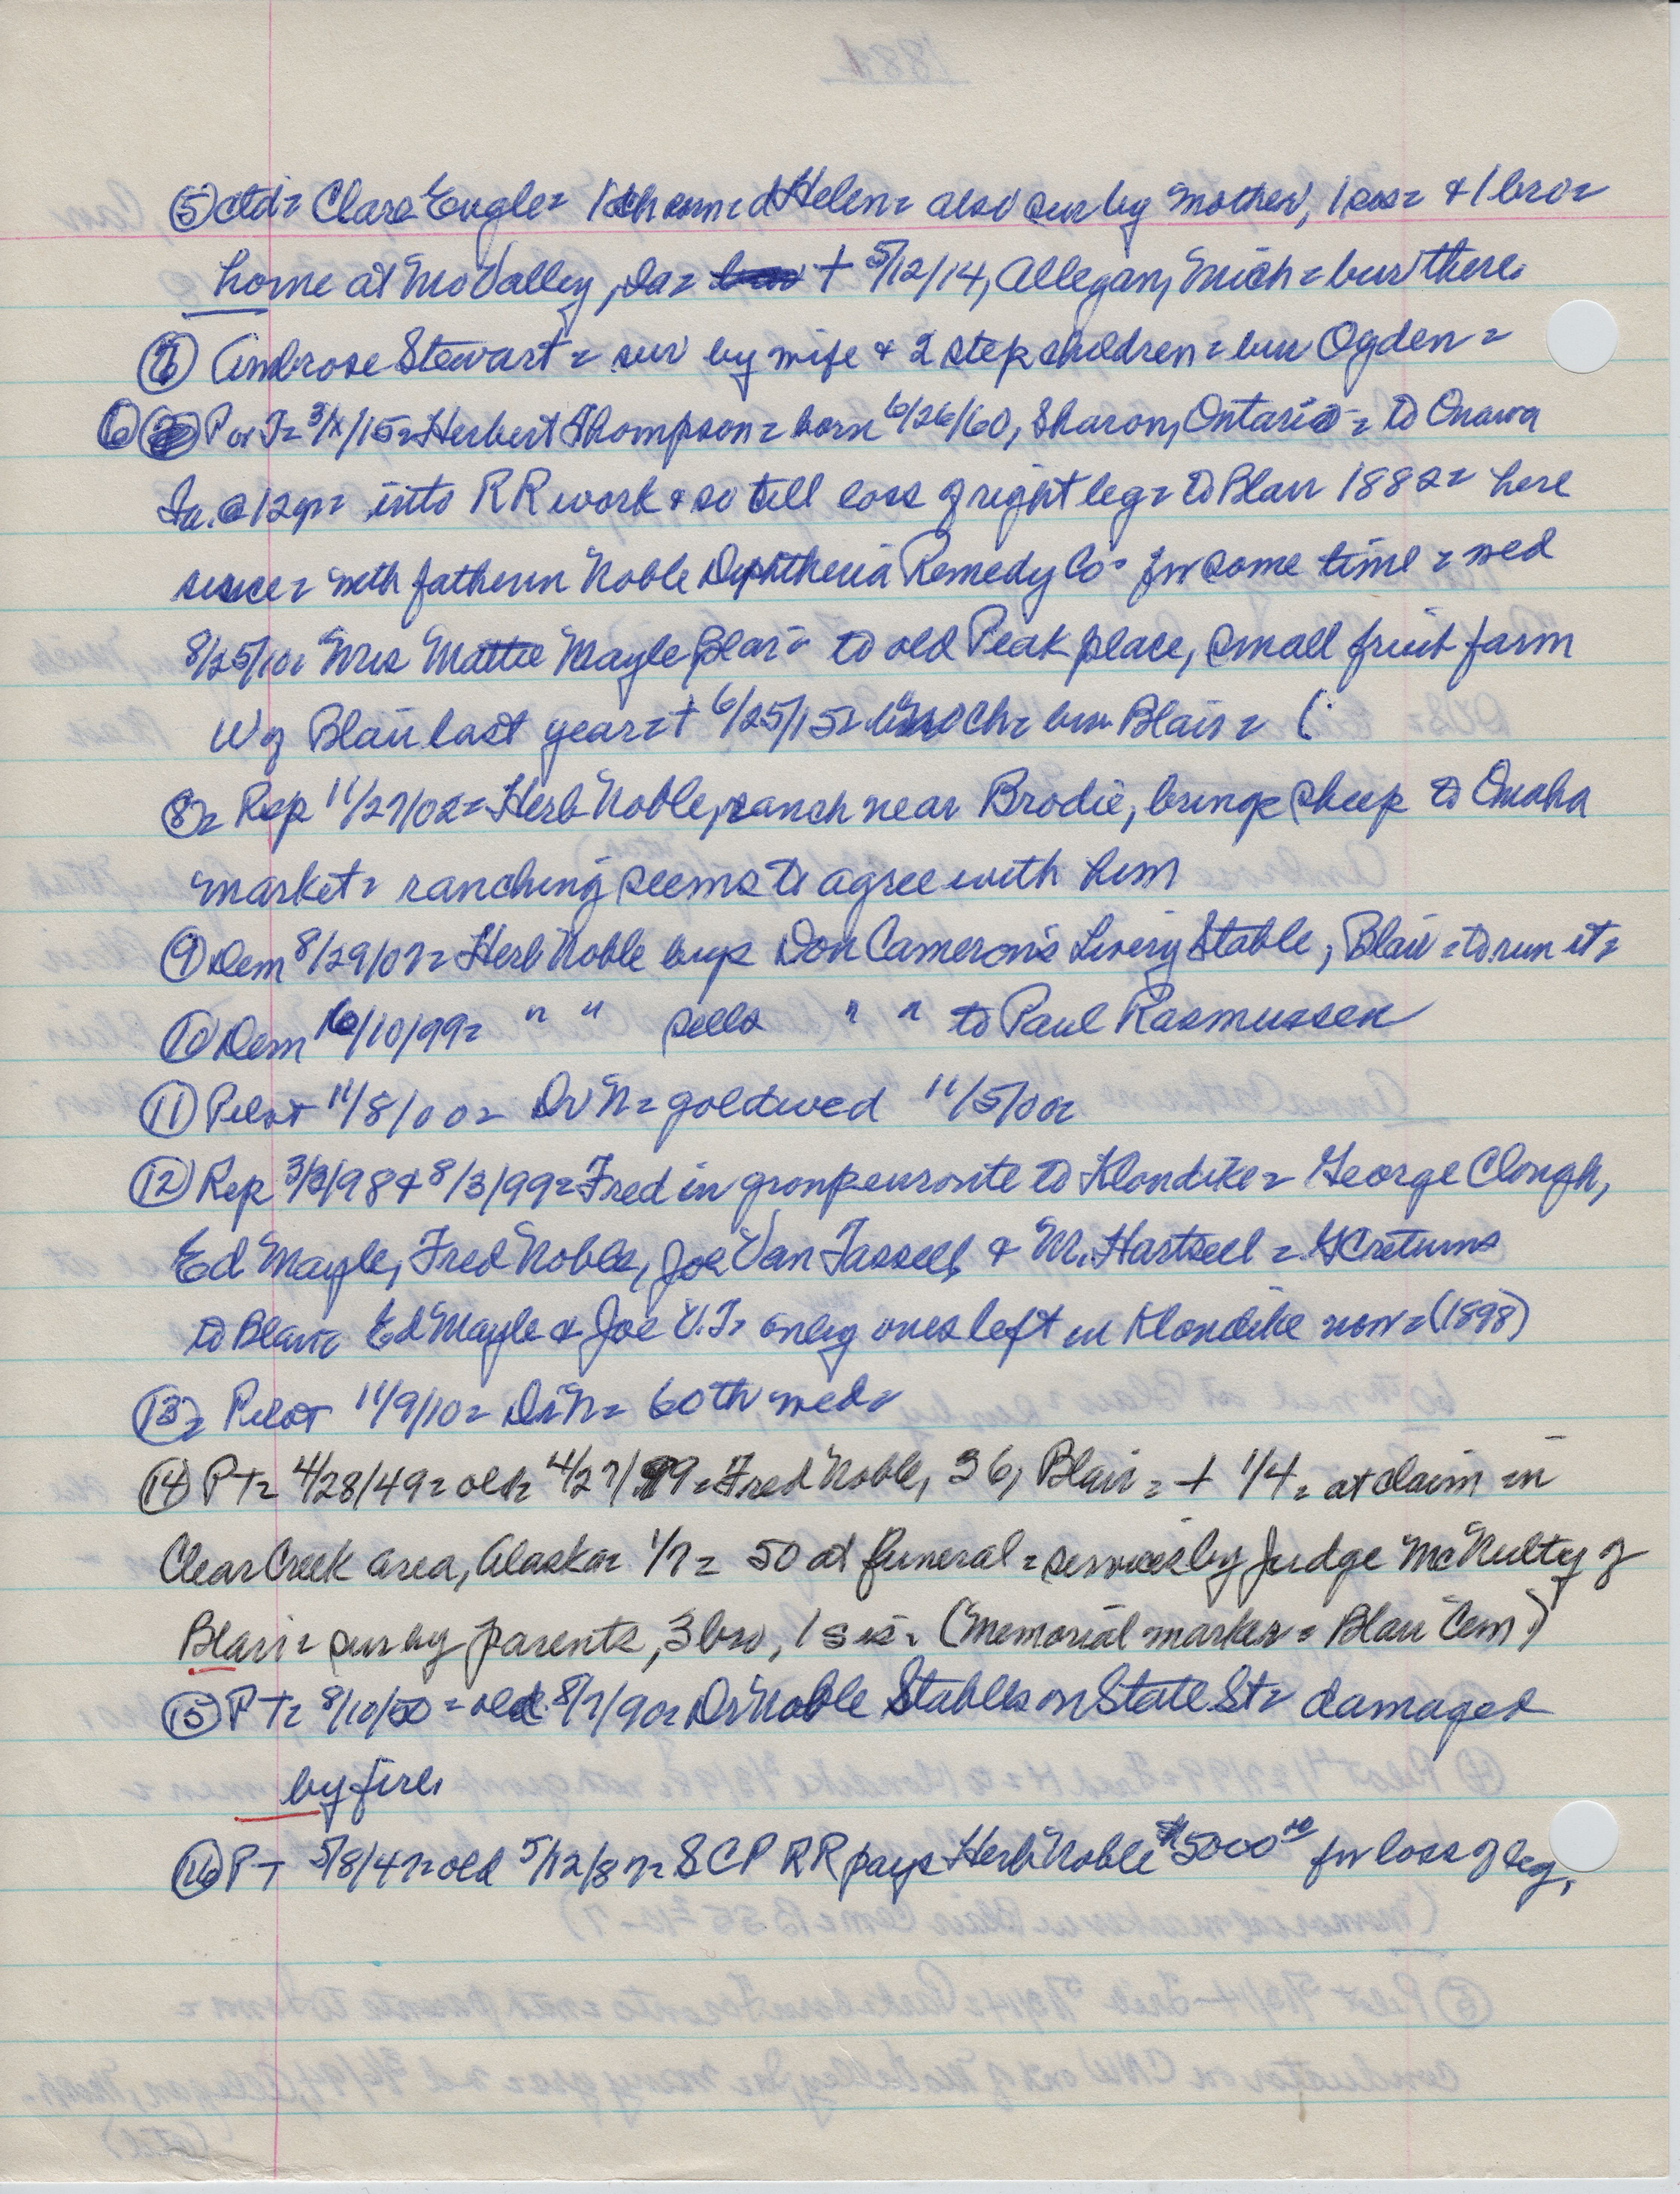 ⑤ ctd= Clara Engle= 1 ch = d Helen= also sur by mother, 1 sis= & 1 bro=
home at Mo Valley, Ia= + 5/12/14, Allegan, Mich = bur there.
⑦ Ambrose Stewart = sur by wife & 2 step children = bur Ogden =
⑥ P or T= /15= Herbert Thompson= born 6/26/60, Sharon, Ontario = to Onawa
Ia. @ 12 yr= into RR work & so till loss of right leg= to Blair 1882= here
since= with father in Noble Diphtheria Remedy Co= for some time = wed
8/25/10= Mrs Mattie Mayle Blair= to old Peak place, small fruit farm
W of Blair last year= + 6/25/15= no ch= bur Blair = (
⑧= Rep 11/27/02= Herb Noble, ranch near Brodie, brings sheep to Omaha
market= ranching seems to agree with him
⑨ Dem 8/29/07= Herb Noble buys Don Cameron's Livery Stable, Blair = to run it=
⑩ Dem /10/99= " " sells " " to Paul Rasmussen
⑪ Pilot 11/8/00= Dr N= gold wed 11/5/00
⑫ Rep 3/3/98 & 8/3/99= Fred in group enroute to Klondike = George Clough,
Ed Mayle, Fred Noble, Joe Van Tassell, & M. Hartsell = GC returns
to Blair= Ed Mayle & Joe V.T= only ones left in Klondike now = (1898)
⑬= Pilot 11/9/10= Dr N= 60th wed=
⑭ PT= 4/28/49= old= 4/27/99= Fred Noble, 36, Blair = + 1/4= at claim in
Clear Creek area, Alaska= 1/7= 50 at funeral = services by Judge McNulty of
Blair= sur by parents, 3 bro, 1 sis. (Memorial marker = Blair Cem)
⑮ PT= 8/10/50 = old 8/7/90= Dr Noble Stables on State St= damaged
by fire.
⑯ PT 5/8/47= old 5/12/87= SCP RR pays Herb Noble $5000 00 for loss of leg,